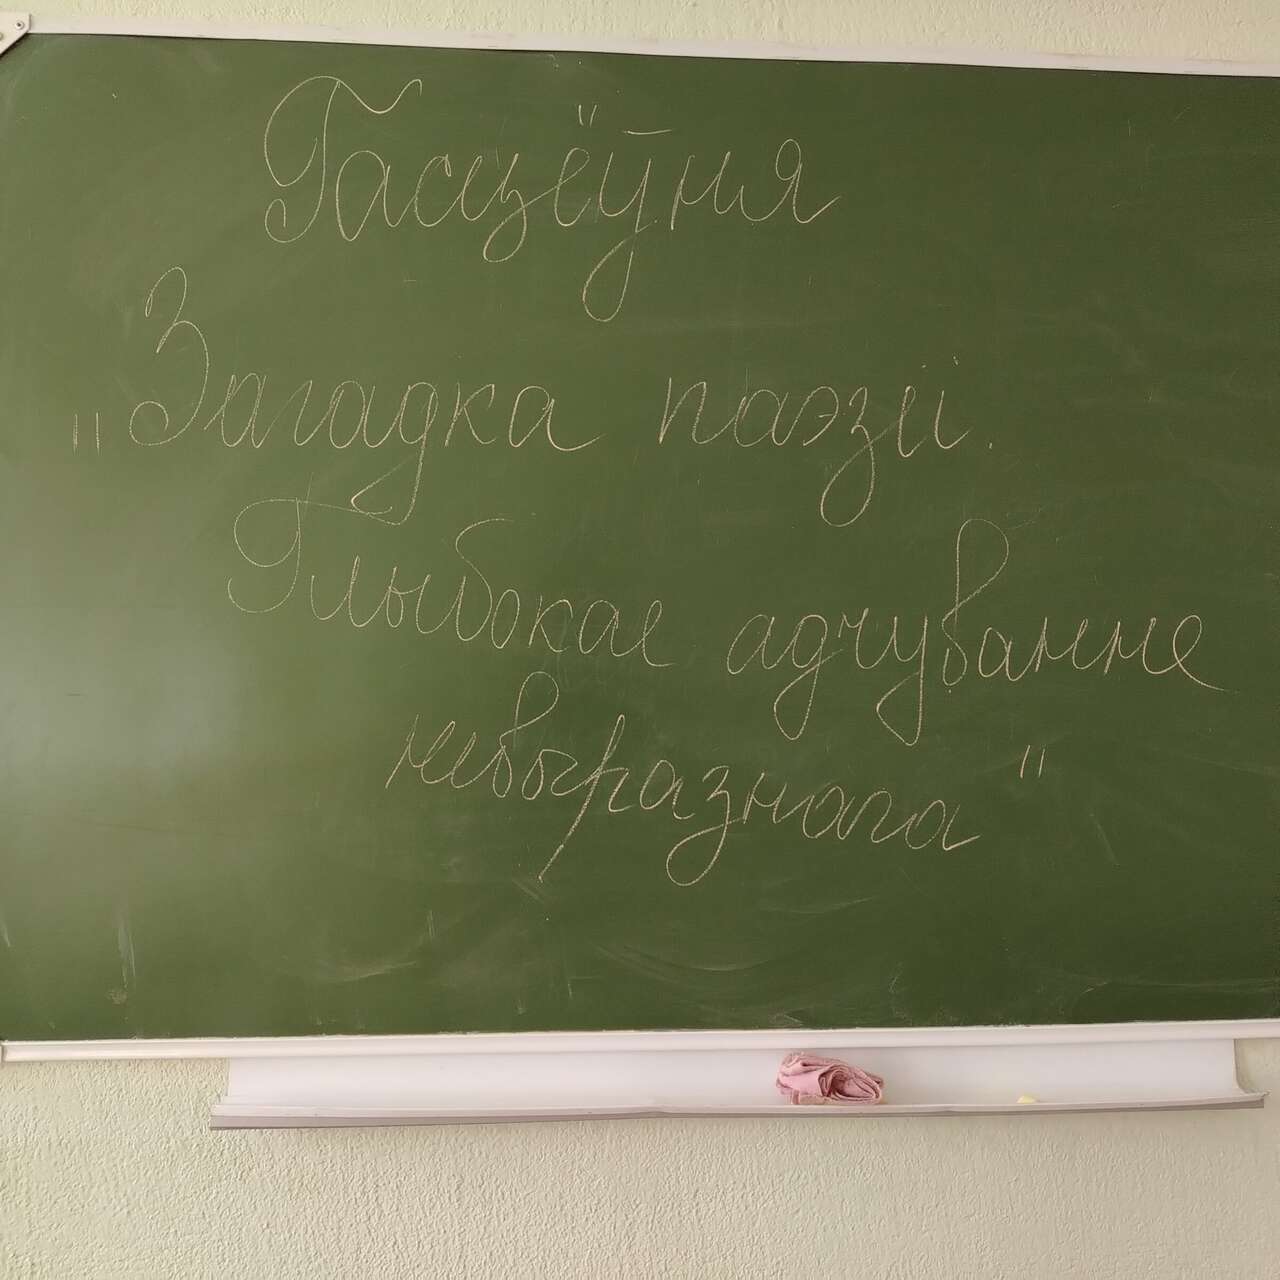 Гасцёўня
"Загадка паэзіі.
Глыбокае адчуванне
невыразнага"